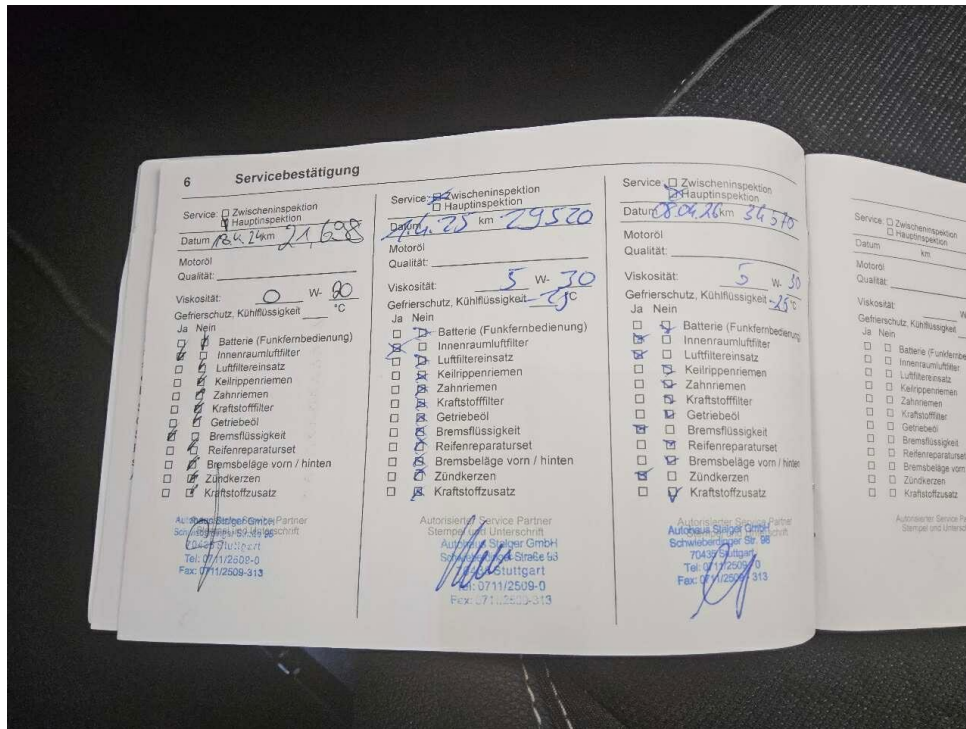 6 Servicebestätigung
Service: Zwischeninspektion
Hauptinspektion
Datum 18.4.24 km 21,698
Motoröl
Qualität:
Viskosität: 0 W- 20
Gefrierschutz, Kühlflüssigkeit °C
Ja Nein
Batterie (Funkfernbedienung)
Innenraumluftfilter
Luftfiltereinsatz
Keilrippenriemen
Zahnriemen
Kraftstofffilter
Getriebeöl
Bremsflüssigkeit
Reifenreparaturset
Bremsbeläge vorn / hinten
Zündkerzen
Kraftstoffzusatz
Autorisierter Service Partner
Stempel und Unterschrift
Autohaus Staiger GmbH
Schwieberdinger Straße 96
70435 Stuttgart
Tel: 0711/2509-0
Fax: 0711/2509-313
Service: Zwischeninspektion
Hauptinspektion
Datum 1.4.25 km 29520
Motoröl
Qualität:
Viskosität: 5 W- 30
Gefrierschutz, Kühlflüssigkeit -25 °C
Ja Nein
Batterie (Funkfernbedienung)
Innenraumluftfilter
Luftfiltereinsatz
Keilrippenriemen
Zahnriemen
Kraftstofffilter
Getriebeöl
Bremsflüssigkeit
Reifenreparaturset
Bremsbeläge vorn / hinten
Zündkerzen
Kraftstoffzusatz
Autorisierter Service Partner
Stempel und Unterschrift
Autohaus Staiger GmbH
Schwieberdinger Straße 96
70435 Stuttgart
Tel: 0711/2509-0
Fax: 0711/2509-313
Service: Zwischeninspektion
Hauptinspektion
Datum 08.04.26 km 34570
Motoröl
Qualität:
Viskosität: 5 W- 30
Gefrierschutz, Kühlflüssigkeit -25 °C
Ja Nein
Batterie (Funkfernbedienung)
Innenraumluftfilter
Luftfiltereinsatz
Keilrippenriemen
Zahnriemen
Kraftstofffilter
Getriebeöl
Bremsflüssigkeit
Reifenreparaturset
Bremsbeläge vorn / hinten
Zündkerzen
Kraftstoffzusatz
Autorisierter Service Partner
Autohaus Staiger GmbH
Schwieberdinger Str. 96
70435 Stuttgart
Tel: 0711/2509-0
Fax: 0711/2509-313
Service: Zwischeninspektion
Hauptinspektion
Datum km
Motoröl
Qualität:
Viskosität: W
Gefrierschutz, Kühlflüssigkeit
Ja Nein
Batterie (Funkfernbe
Innenraumluftfilter
Luftfiltereinsatz
Keilrippenriemen
Zahnriemen
Kraftstofffilter
Getriebeöl
Bremsflüssigkeit
Reifenreparaturset
Bremsbeläge vorn
Zündkerzen
Kraftstoffzusatz
Autorisierter Service Pa
Stempel und Untersc